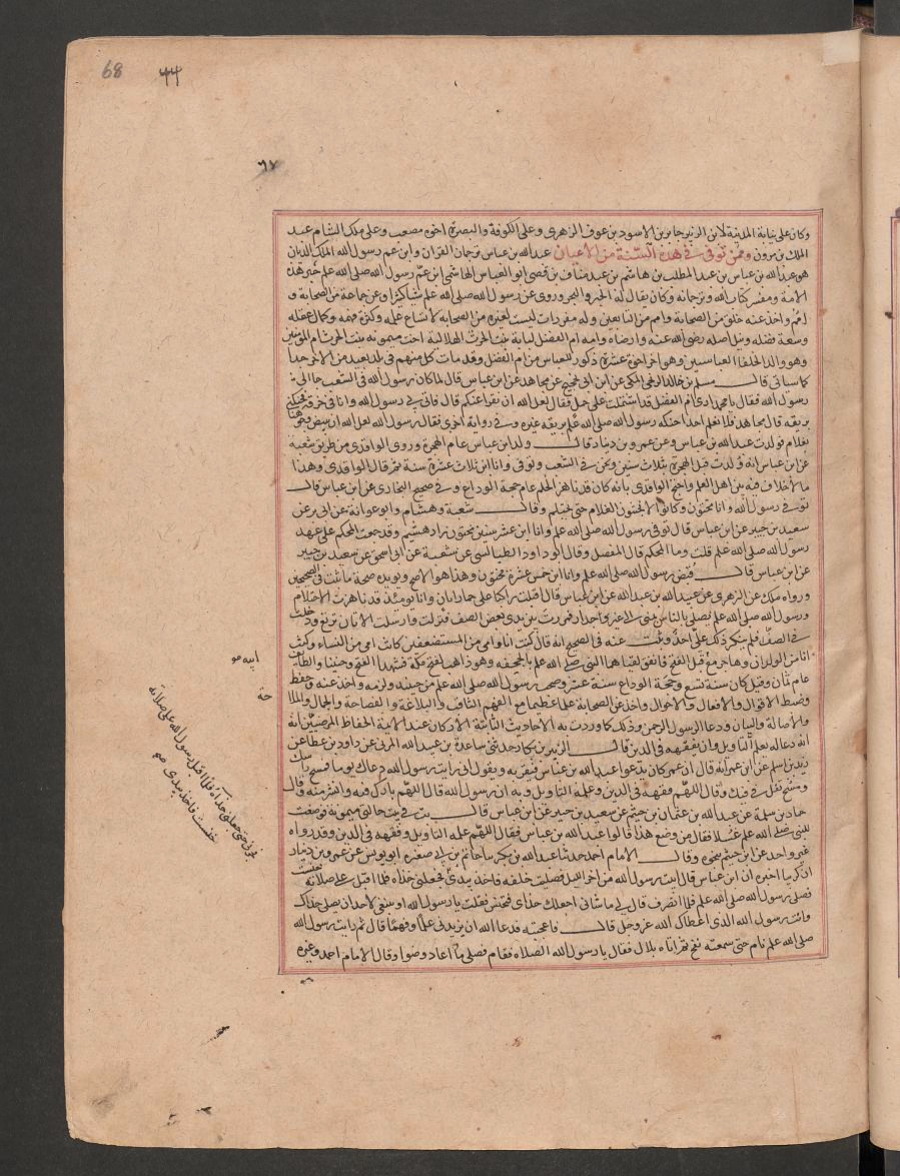 68
٦٦
٦٧
وكان على نيابة المدينة لابن الزبير جابر بن الاسود بن عوف الزهرى وعلى الكوفة والبصرة اخوه مصعب وعلى ملك الشام عبد
الملك بن مرون وممن توفى فى هذه السنة من الاعيان عبد الله بن عباس ترجمان القران وابن عم رسول الله الملك الديان
هو عبد الله بن عباس بن عبد المطلب بن هاشم بن عبد مناف بن قصى ابو العباس الهاشمى ابن عم رسول الله صلى الله علم حبر هذه
الامة ومفسر كتاب الله وترجمانه وكان يقال له الحبر والبحر وروى عن رسول الله صلى الله علم شيا كثيرا وعن جماعة من الصحابة و
اخذ عنه خلق من الصحابة وامم من التابعين وله مفردات ليست لغيره من الصحابه لاتساع علمه وكثرة فهمه وكمال عقله
وسعة فضله ونبل اصله رضى الله عنه وارضاه وامه ام الفضل لبابة بنت الحرث الهلالية اخت ميمونه بنت الحرث ام المومنين
وهو والد الخلفا العباسيين وهو اخو اخوة عشرة ذكور للعباس من ام الفضل وقد مات كل منهم فى بلد بعيد من الاخر جدا
كما سياتى قال مسلم بن خالد الزنجى المكى عن ابن ابى نجيح عن مجاهد عن ابن عباس قال لما كان رسول الله فى الشعب جا ابى الى
رسول الله فقال يا محمد ارى ام الفضل قد اشتملت على حمل فقال لعل الله ان يقر اعينكم قال فاتى بى رسول الله وانا فى خرقة فحنكنى
بريقه قال مجاهد فلا نعلم احدا حنكه رسول الله صلى الله علم بريقه غيره وفى رواية اخرى فقال رسول الله لعل الله ان يبيض وجوهنا
بغلام فولدت عبد الله بن عباس وعن عمرو بن دينار قال ولد ابن عباس عام الهجرة وروى الواقدى من طريق شعبة
عن ابن عباس انه قال ولدت قبل الهجرة بثلاث سنين ونحن فى الشعب وتوفى وانا ابن ثلاث عشرة سنة ثم قال الواقدى وهذا
ما لا خلاف فيه بين اهل العلم واحتج الواقدى بانه كان قد ناهز الحلم عام حجة الوداع وفى صحيح البخارى عن ابن عباس قال
توفى رسول الله وانا مختون وكانوا لا يختنون الغلام حتى يحتلم وقال شعبة وهشام وابو عوانة عن ابى بشر عن
سعيد بن جبير عن ابن عباس قال توفى رسول الله صلى الله علم وانا ابن عشر سنين مختون زاد هشيم وقد جمعت المحكم على عهد
رسول الله صلى الله علم قلت وما المحكم قال المفصل وقال ابو داود الطيالسى عن شعبة عن ابى اسحق عن سعيد بن جبير
عن ابن عباس قال قبض رسول الله صلى الله علم وانا ابن خمس عشرة مختون وهذا هو الاصح ويويده صحة ما ثبت فى الصحيحين
ورواه ملك عن الزهرى عن عبيد الله بن عبد الله عن ابن عباس قال اقبلت راكبا على حمار اتان وانا يومئذ قد ناهزت الاحتلام
ورسول الله صلى الله علم يصلى بالناس بمنى الى غير جدار فمررت بين يدى بعض الصف فنزلت وارسلت الاتان ترتع ودخلت
فى الصف فلم ينكر ذلك على احد وثبت عنه فى الصحيح انه قال كنت انا وامى من المستضعفين كانت امى من النساء وكنت
انا من الولدان وهاجر مع قبل الفتح فاتفق لقيا هما النبى صلى الله علم بالجحفه وهو ذاهب لفتح مكة فشهد الفتح وحنينا والطائف
عام ثمان وقيل كان سنة تسع وحجة الوداع سنة عشر وصحب رسول الله صلى الله علم من حينئذ ولزمه واخذ عنه وحفظ
وضبط الاقوال والافعال والاحوال واخذ عن الصحابة علما عظيما مع الفهم الثاقب والبلاغة والفصاحة والجمال والملا
والاصالة والبيان ودعا له رسول الرحمن وذلك كما وردت به الاحاديث الثابتة الاركان عند الائمة الحفاظ المرضيين انه
انه دعا له بعلم التاويل وان يفقهه فى الدين قال الزبير بن بكار حدثنى ساعدة بن عبيد الله المزنى عن داود بن عطا عن
زيد بن اسلم عن ابن عمر انه قال ان عمر كان يدعوا عبد الله بن عباس فيقربه ويقول انى رايت رسول الله دعاك يوما فمسح راسك
ومسح تفل فى فيك وقال اللهم فقهه فى الدين وعلمه التاويل وبه ان رسول الله قال اللهم بارك فيه وانشر منه وقال
حماد بن سلمة عن عبد الله بن عثمان بن خيثم عن سعيد بن جبير عن ابن عباس قال بت فى بيت خالتى ميمونة فوضعت
للنبى صلى الله علم غسلا فقال من وضع هذا قالوا عبد الله بن عباس فقال اللهم علمه التاويل وفقهه فى الدين وقد رواه
غير واحد عن ابن خيثم بنحوه وقال الامام احمد حدثنا عبد الله بن بكر بنا حاتم بن ابى صغيرة ابو يونس عن عمرو بن دينار
ان كريبا اخبره ان ابن عباس قال اتيت رسول الله من اخر الليل فصليت خلفه فاخذ بيدى فجعلنى حذاه فلما اقبل على صلاته خنست
فصلى رسول الله صلى الله علم فلما انصرف قال لى ما شانى اجعلك حذاى فتخنس فقلت يا رسول الله او ينبغى لاحد ان يصلى حذاك
وانت رسول الله الذى اعطاك الله عز وجل قال فاعجبته فدعا الله ان يزيدنى علما وفهما قال ثم رايت رسول الله
صلى الله علم نام حتى سمعته نفخ ثم اتاه بلال فقال يا رسول الله الصلاه فقام فصلى ما اعاد وضوا وقال الامام احمد وغيره
ابيه صو
فجرنى حتى جعلنى حذاه فلما اقبل رسول الله على صلاته
خنست فاخذ بيدى صو